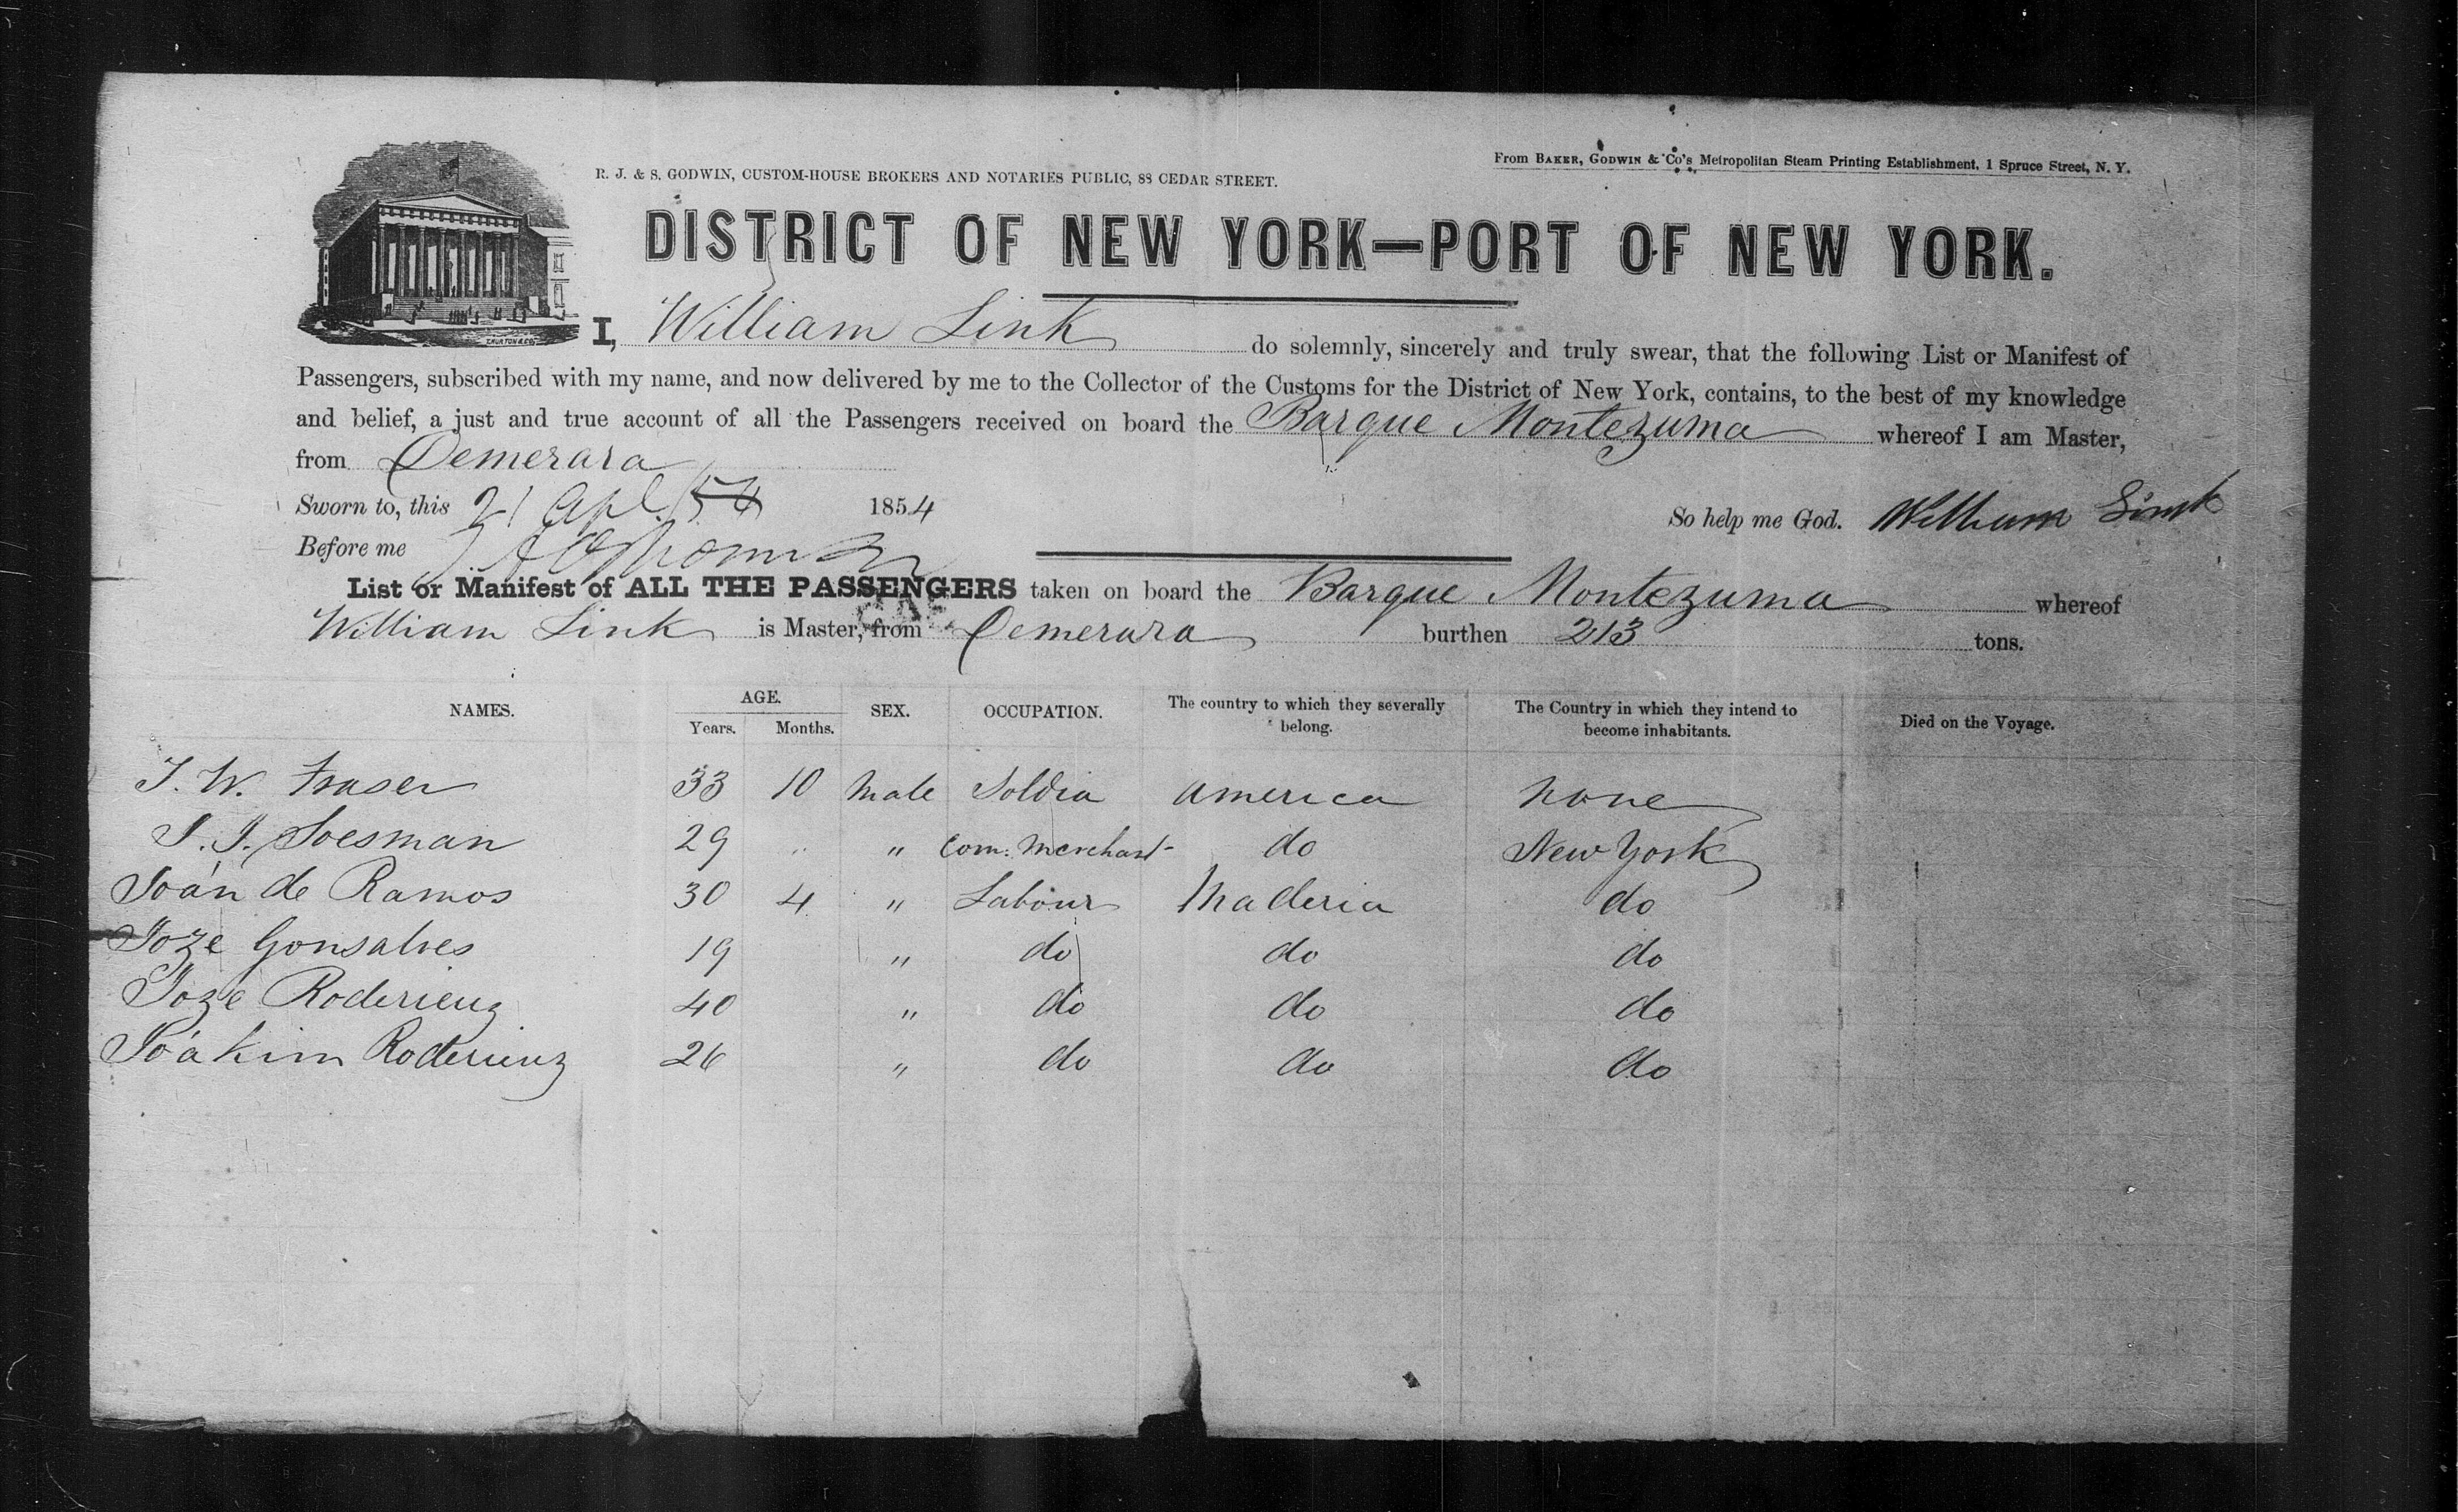 R. J. & S. GODWIN, CUSTOM-HOUSE BROKERS AND NOTARIES PUBLIC, 88 CEDAR STREET.
From BAKER, GODWIN & Co's Metropolitan Steam Printing Establishment, 1 Spruce Street, N. Y.
DISTRICT OF NEW YORK—PORT OF NEW YORK.
I, William Link do solemnly, sincerely and truly swear, that the following List or Manifest of
Passengers, subscribed with my name, and now delivered by me to the Collector of the Customs for the District of New York, contains, to the best of my knowledge
and belief, a just and true account of all the Passengers received on board the Barque Montezuma whereof I am Master,
from Demerara
Sworn to, this 21 Apl 54 1854 So help me God. William Link
Before me
List or Manifest of ALL THE PASSENGERS taken on board the Barque Montezuma whereof
William Link is Master, from Demerara burthen 213 tons.
NAMES. AGE. Years. Months. SEX. OCCUPATION. The country to which they severally belong. The Country in which they intend to become inhabitants. Died on the Voyage.
J. W. Fraser 33 10 Male Soldia America None
J. J. Soesman 29 " " Com. Merchant do New York
Joán de Ramos 30 4 " Labour Maderia do
Joze Gonsalves 19 " do do do
Joze Roderieuz 40 " do do do
Joákim Roderieuz 26 " do do do